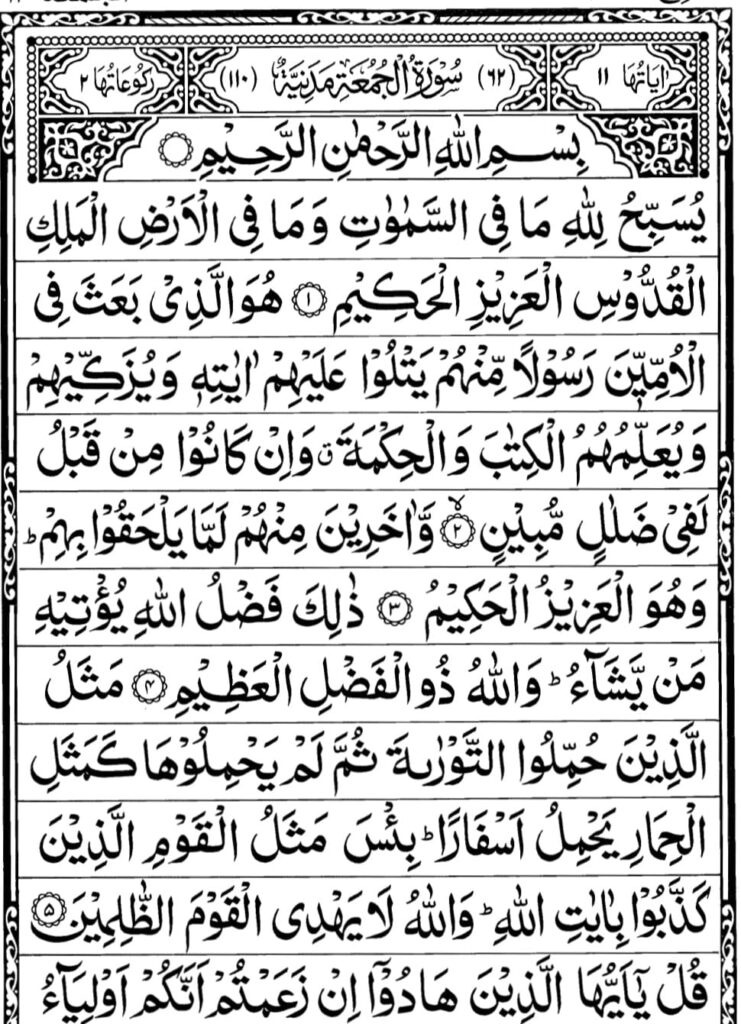 اٰيَاتُهَا ١١ (٦٢) سُوْرَةُ الْجُمُعَةِ مَدَنِيَّةٌ (١١٠) رُكُوْعَاتُهَا ٢
بِسْمِ اللّٰهِ الرَّحْمٰنِ الرَّحِيْمِ
يُسَبِّحُ لِلّٰهِ مَا فِي السَّمٰوٰتِ وَمَا فِي الْاَرْضِ الْمَلِكِ
الْقُدُّوْسِ الْعَزِيْزِ الْحَكِيْمِ ۝١ هُوَ الَّذِيْ بَعَثَ فِي
الْاُمِّيّٖنَ رَسُوْلًا مِّنْهُمْ يَتْلُوْا عَلَيْهِمْ اٰيٰتِهٖ وَيُزَكِّيْهِمْ
وَيُعَلِّمُهُمُ الْكِتٰبَ وَالْحِكْمَةَ ۗ وَاِنْ كَانُوْا مِنْ قَبْلُ
لَفِيْ ضَلٰلٍ مُّبِيْنٍ ۙ۝٢ وَّاٰخَرِيْنَ مِنْهُمْ لَمَّا يَلْحَقُوْا بِهِمْ ؕ
وَهُوَ الْعَزِيْزُ الْحَكِيْمُ ۝٣ ذٰلِكَ فَضْلُ اللّٰهِ يُؤْتِيْهِ
مَنْ يَّشَآءُ ؕ وَاللّٰهُ ذُو الْفَضْلِ الْعَظِيْمِ ۝٤ مَثَلُ
الَّذِيْنَ حُمِّلُوا التَّوْرٰىةَ ثُمَّ لَمْ يَحْمِلُوْهَا كَمَثَلِ
الْحِمَارِ يَحْمِلُ اَسْفَارًا ؕ بِئْسَ مَثَلُ الْقَوْمِ الَّذِيْنَ
كَذَّبُوْا بِاٰيٰتِ اللّٰهِ ؕ وَاللّٰهُ لَا يَهْدِى الْقَوْمَ الظّٰلِمِيْنَ ۝٥
قُلْ يٰٓاَيُّهَا الَّذِيْنَ هَادُوْٓا اِنْ زَعَمْتُمْ اَنَّكُمْ اَوْلِيَآءُ